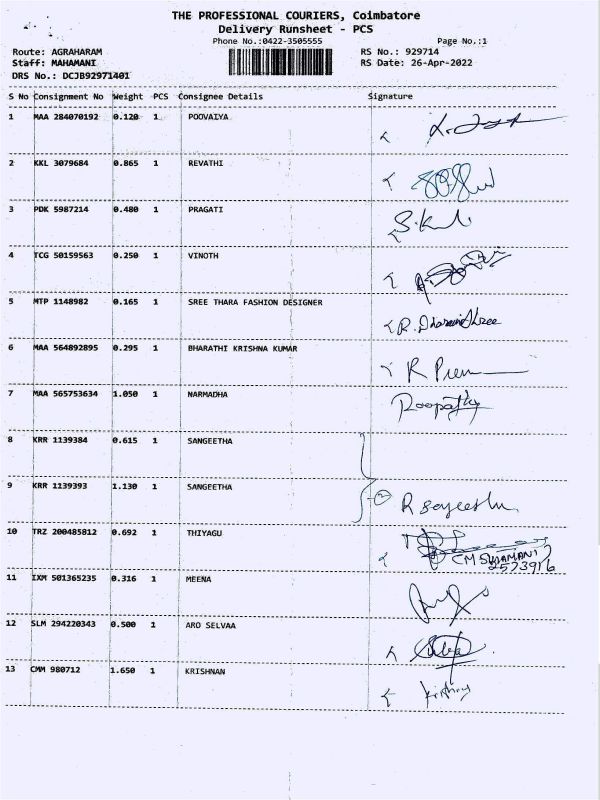 THE PROFESSIONAL COURIERS, Coimbatore
Delivery Runsheet - PCS
Phone No.:0422-3505555 Page No.:1
Route: AGRAHARAM RS No.: 929714
Staff: MAHAMANI RS Date: 26-Apr-2022
DRS No.: DCJB92971401
S No Consignment No Weight PCS Consignee Details Signature
1 MAA 284070192 0.120 1 POOVAIYA
2 KKL 3079684 0.865 1 REVATHI
3 PDK 5987214 0.480 1 PRAGATI
4 TCG 50159563 0.250 1 VINOTH
5 MTP 1148982 0.165 1 SREE THARA FASHION DESIGNER
R. Dharanishree
6 MAA 564892895 0.295 1 BHARATHI KRISHNA KUMAR
R Prem
7 MAA 565753634 1.050 1 NARMADHA
Roopathy
8 KRR 1139384 0.615 1 SANGEETHA
9 KRR 1139393 1.130 1 SANGEETHA
2
10 TRZ 200485812 0.692 1 THIYAGU
11 IXM 501365235 0.316 1 MEENA
12 SLM 294220343 0.500 1 ARO SELVAA
13 CMM 980712 1.650 1 KRISHNAN